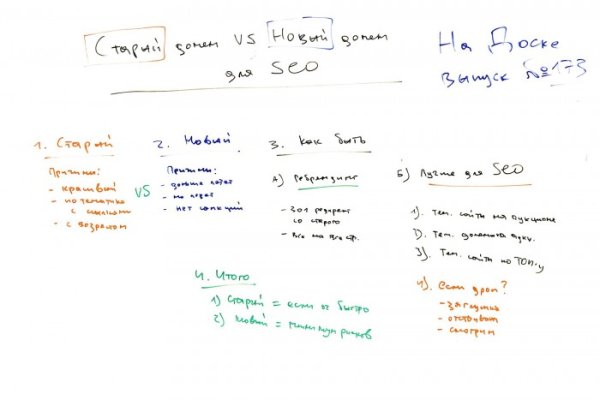 Старый домен VS Новый домен
для SEO
На Доске
выпуск №173
1. Старый
Причины:
- красивый
- по тематике
с ссылками
- с возрастом
VS
2. Новый
Причины:
- дольше
- нет санкций
3. Как быть
А) Ребрендинг
- 301 редирект
со старого
- Все на
Б) Лучше для SEO
1). Тем. сайты на аукционе
2). Тем. домены на аукц.
3). Тем. сайты по ТОП-у
4). Если дроп?
- заглушка
- отстойник
- смотрим
4. Итого
1) Старый = если оч быстро
2) Новый = минимум рисков